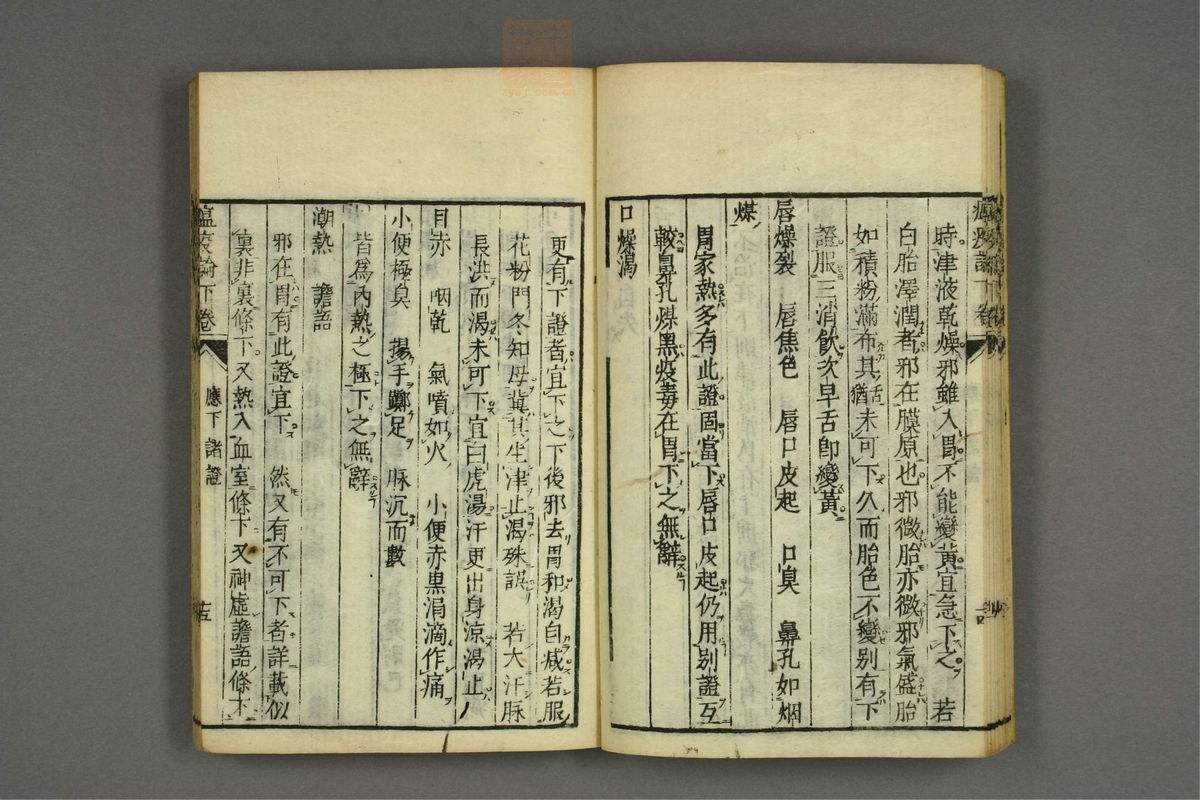 時津液乾燥邪雖入胃不能變黃宜急下之 若
白胎澤潤者邪在膜原也邪微胎亦微邪氣盛胎
如積粉滿布其舌猶未可下久而胎色不變別有下
證服三消飲次早舌卽變黃
唇燥裂 唇焦色 唇口皮起 口臭 鼻孔如烟
煤
胃家熱多有此證固當下唇口皮起仍用別證互
較鼻孔煤黑疫毒在胃下之無辭
口燥渴
更有下證者宜下之下後邪去胃和渴自减若服
花粉門冬知母冀其生津止渴殊誤 若大汗脉
長洪而渴未可下宜白虎湯汗更出身涼渴止
目赤 咽乾 氣噴如火 小便赤黑涓滴作痛
小便極臭 揚手擲足 脉沉而數
皆爲內熱之極下之無辭
潮熱 譫語
邪在胃有此證宜下 然又有不可下者詳載似
裏非裏條下又熱入血室條下又神虛譫語條下
瘟疫論下卷
應下諸證